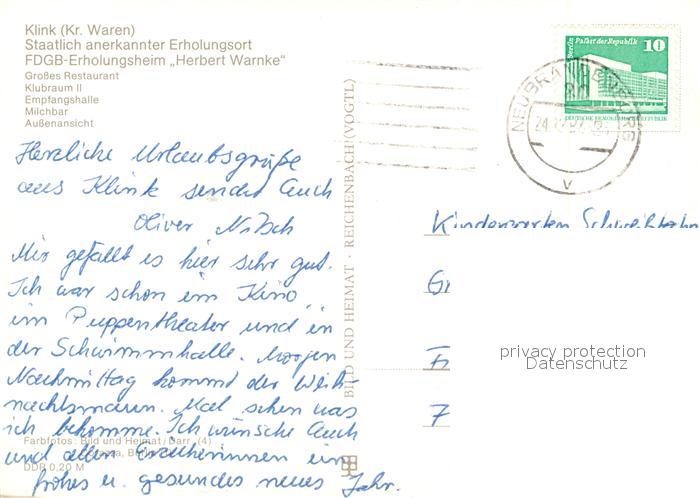 Klink (Kr. Waren)
Staatlich anerkannter Erholungsort
FDGB-Erholungsheim „Herbert Warnke“
Großes Restaurant
Klubraum II
Empfangshalle
Milchbar
Außenansicht
Berlin Palast der Republik 10
DEUTSCHE DEMOKRATISCHE REPUBLIK
NEUBRANDENBURG
24.12.
v
Herzliche Urlaubsgrüße
aus Klink sendet Euch
Oliver Nitsch
Mir gefällt es hier sehr gut.
Ich war schon im Kino,
im Puppentheater und in
der Schwimmhalle. Morgen
Nachmittag kommt der Weih-
nachtsmann. Mal sehen was
ich bekomme. Ich wünsche Euch
und allen Erzieherinnen ein
frohes u. gesundes neues Jahr.
Farbfotos: Bild und Heimat/Darr (4)
DDR 0,20 M
BILD UND HEIMAT · REICHENBACH (VOGTL)
Kindergarten
privacy protection
Datenschutz